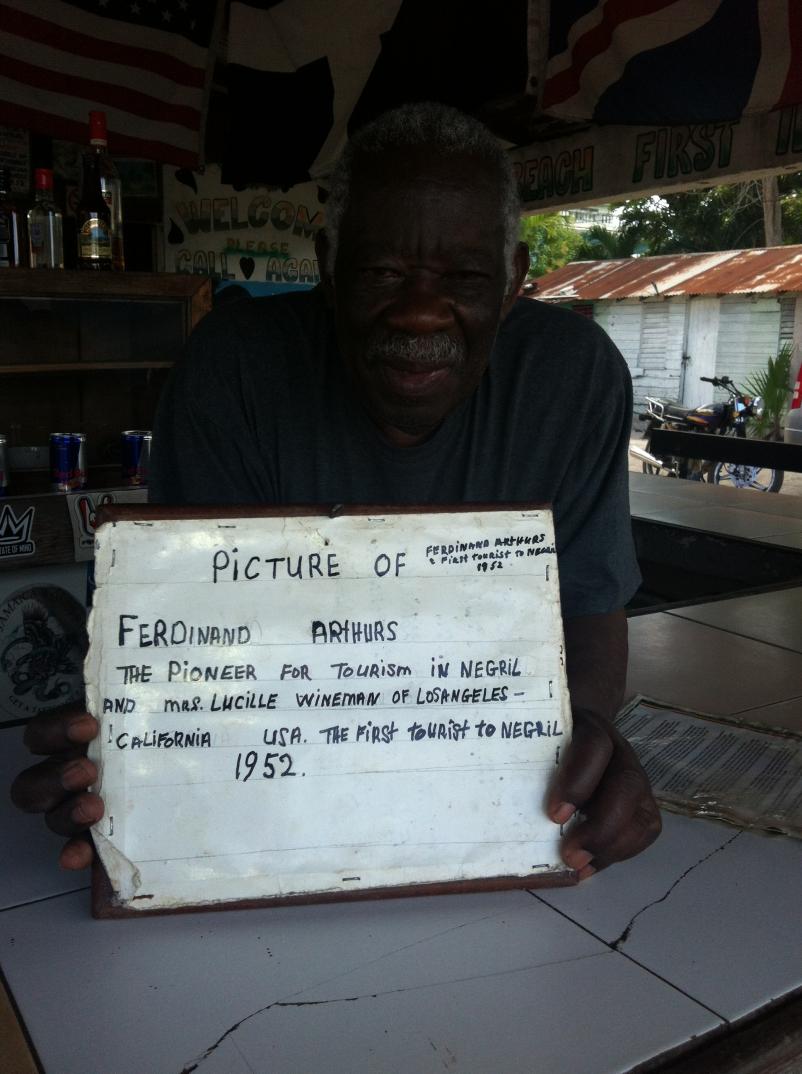 WELCOM
PLEASE
CALL ♥ AGAI
EACH FIRST
STATE OF MIND
PICTURE OF FERDINAND ARTHURS
& FIRST TOURIST TO NEGRIL
1952
FERDINAND ARTHURS
THE PIONEER FOR TOURISM IN NEGRIL
AND MRS. LUCILLE WINEMAN OF LOSANGELES -
CALIFORNIA USA. THE FIRST TOURIST TO NEGRIL
1952.